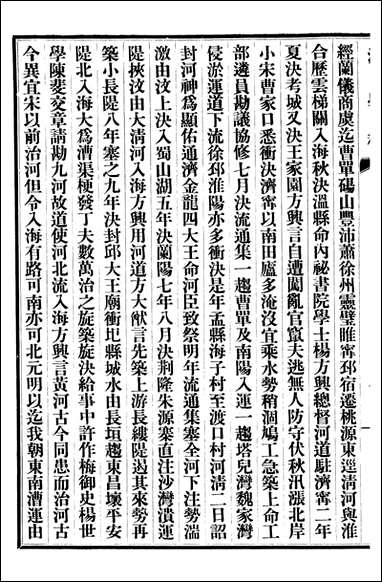 經蘭儀商虞迄曹單碭山豐沛蕭徐州靈璧睢寧邳宿遷桃源東逕清河與淮
合歷雲梯關入海秋決溫縣命內祕書院學士楊方興總督河道駐濟寧二年
夏決考城又決王家園方興言自遭闖亂官竄夫逃無人防守伏秋汛漲北岸
小宋曹家口悉衝決濟寧以南田廬多淹沒宜乘水勢稍涸鳩工急築上命工
部遴員勘議協修七月決流通集一趨曹單及南陽入運一趨塔兒灣魏家灣
侵淤運道下流徐邳淮陽亦多衝決是年孟縣海子村至渡口村河清二日詔
封河神爲顯佑通濟金龍四大王命河臣致祭明年流通集塞全河下注勢湍
激由汶上決入蜀山湖五年決蘭陽七年八月決荆隆朱源寨直往沙灣潰運
隄挾汶由大清河入海方興用河道方大猷言先築上游長縷隄遏其來勢再
築小長隄八年塞之九年決封邱大王廟衝圯縣城水由長垣趨東昌壞平安
隄北入海大爲漕渠梗發丁夫數萬治之旋築旋決給事中許作梅御史楊世
學陳斐交章請勘九河故道使河北流入海方興言黃河古今同患而治河古
今異宜宋以前治河但令入海有路可南亦可北元明以迄我朝東南漕運由